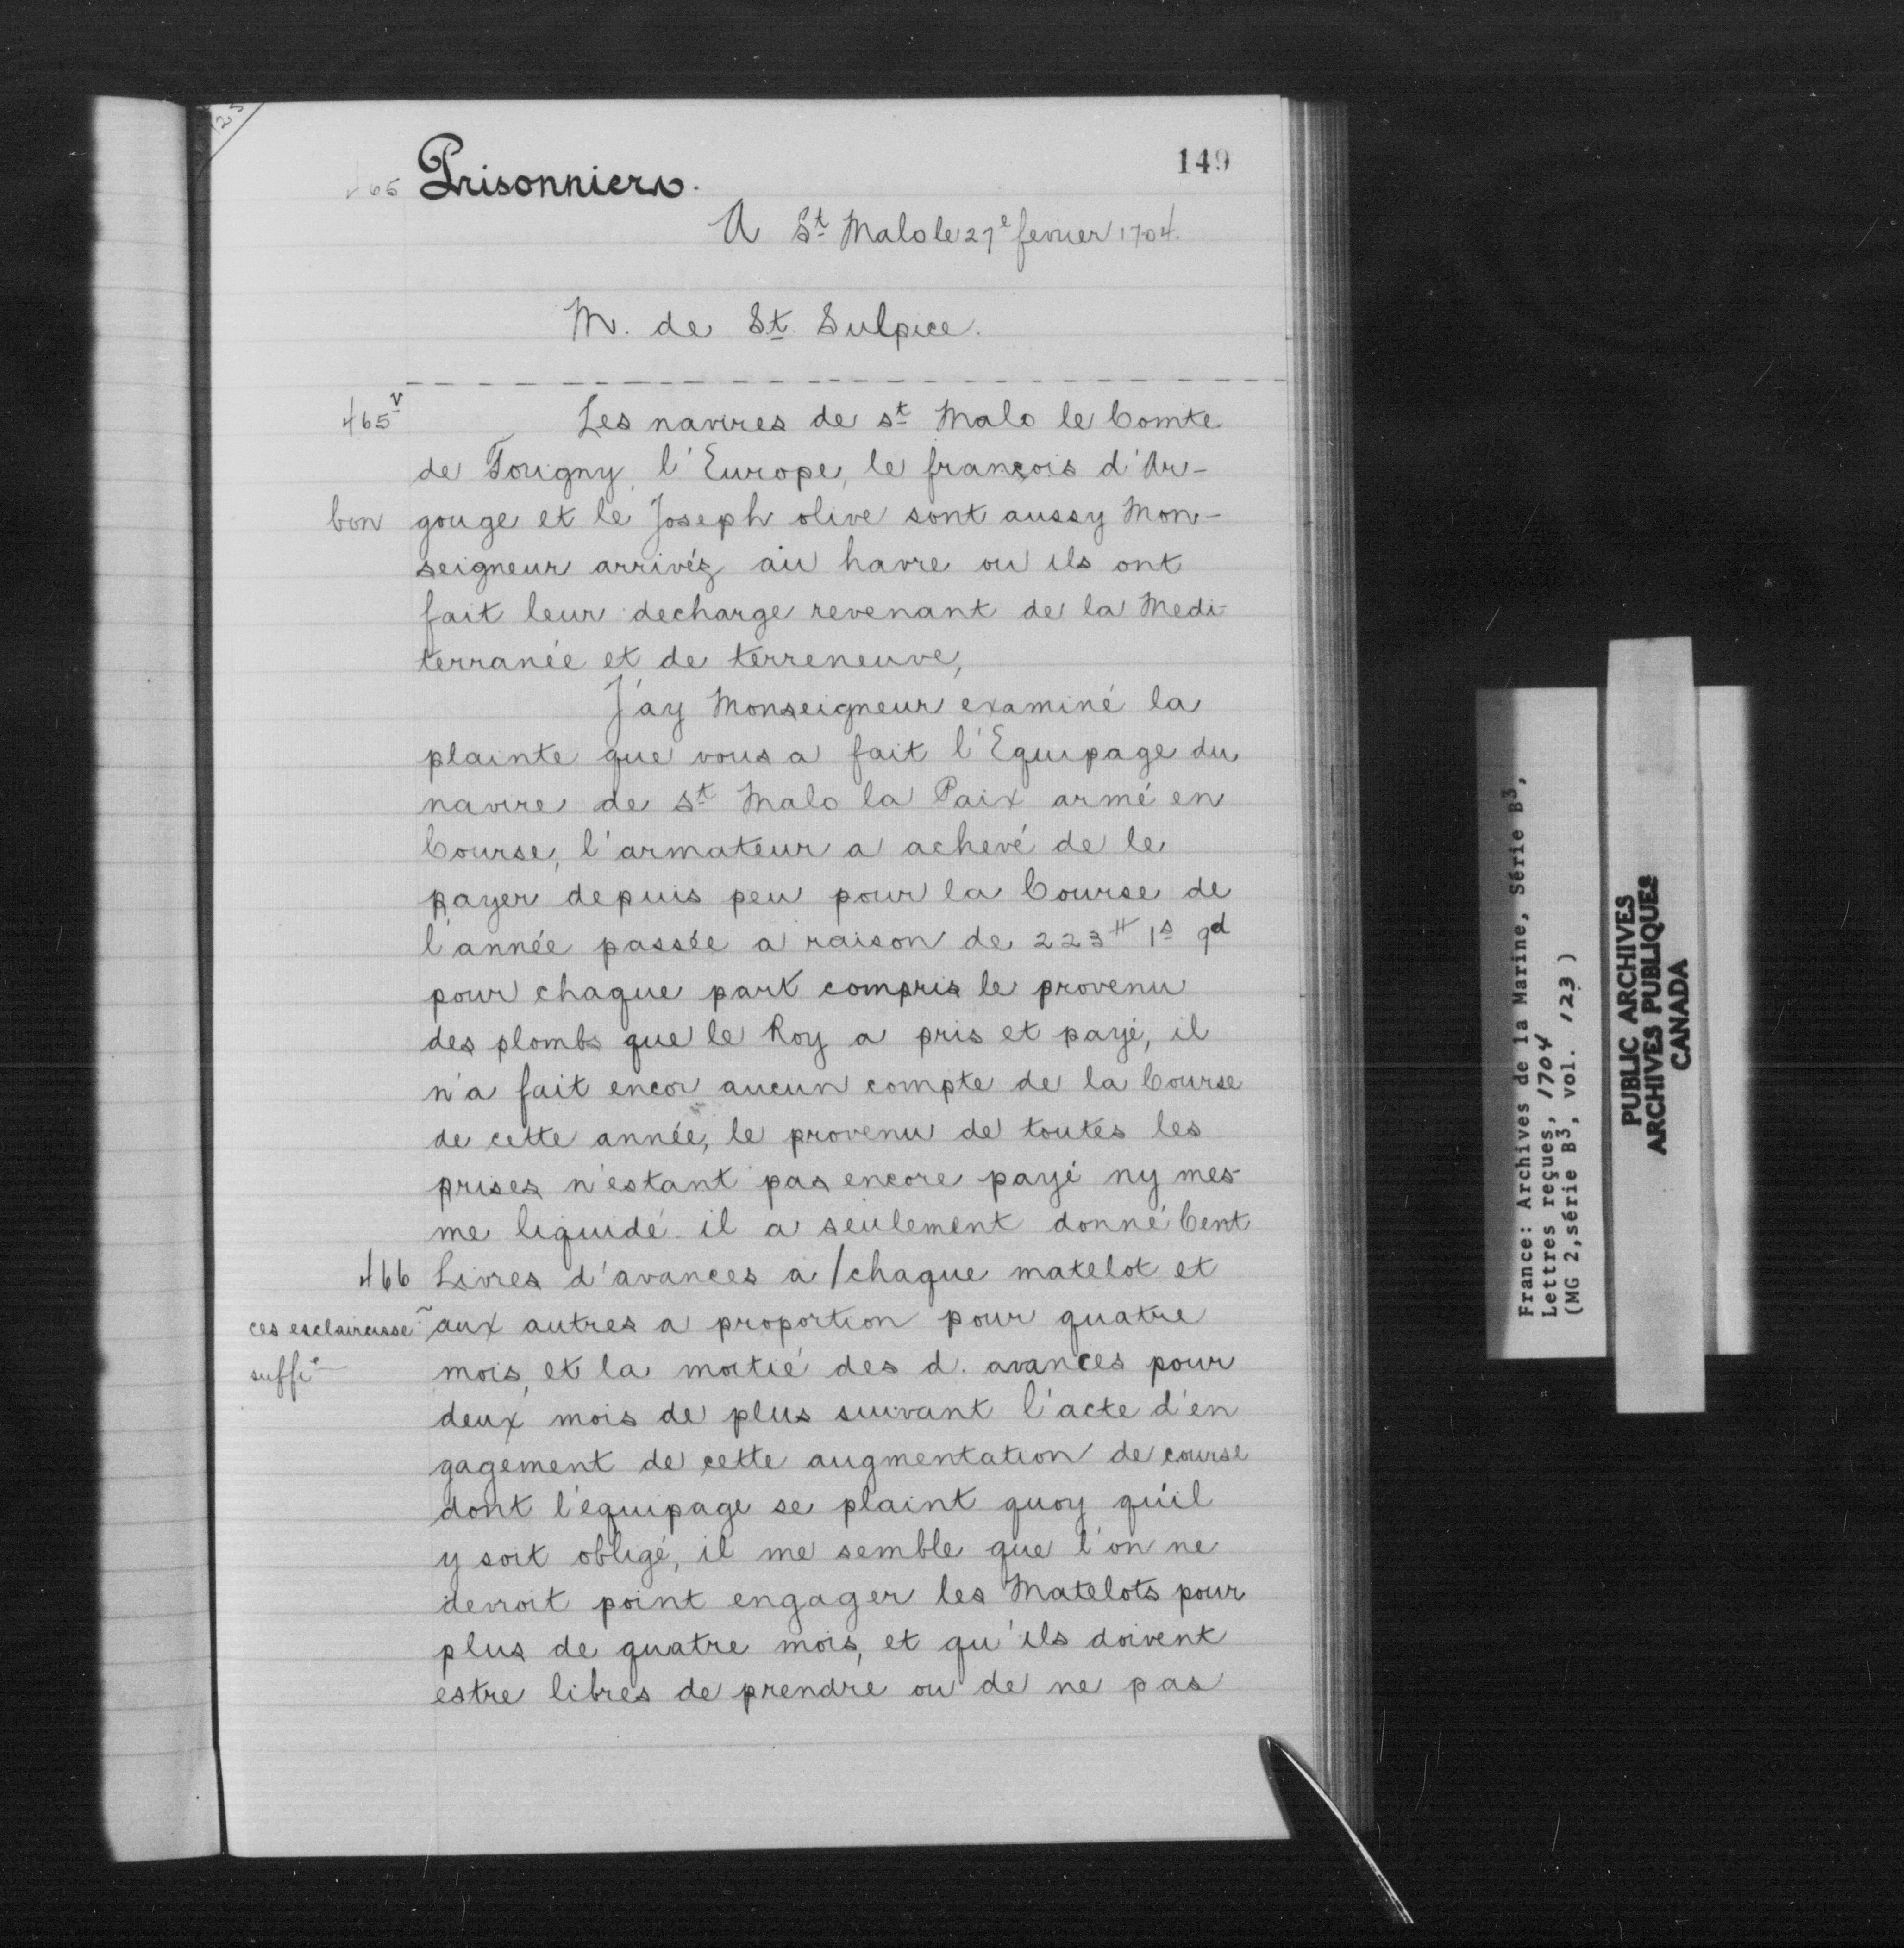 125
149
465 Prisonniers.
A St Malo le 27e fevrier 1704.
M. de St. Sulpice.
465v
Les navires de st Malo le Comte
de Tourigny, l'Europe, le françois d'Ar-
bon
gouge et le Joseph olive sont aussy Mon-
seigneur arrivéz au havre ou ils ont
fait leur decharge revenant de la Medi-
terranée et de terreneuve,
J'ay Monseigneur examiné la
plainte que vous a fait l'Equipage du
navire de St Malo la Paix armé en
Course, l'armateur a achevé de le
payer depuis peu pour la Course de
l'année passée a raison de 223# 1s 9d
pour chaque part compris le provenu
des plombs que le Roy a pris et payé, il
n'a fait encor aucun compte de la Course
de cette année, le provenu de toutes les
prises n'estant pas encore payé ny mes-
me liquidé il a seulement donné Cent
466 Livres d'avances a / chaque matelot et
ces esclaircisse~
aux autres a proportion pour quatre
suffie
mois, et la moitié des d. avances pour
deux mois de plus suivant l'acte d'en
gagement de cette augmentation de course
dont l'equipage se plaint quoy qu'il
y soit obligé, il me semble que l'on ne
devroit point engager les Matelots pour
plus de quatre mois, et qu'ils doivent
estre libres de prendre ou de ne pas
France: Archives de la Marine, Série B3,
Lettres reçues, 1704
(MG 2, série B3, vol. 123)
PUBLIC ARCHIVES
ARCHIVES PUBLIQUES
CANADA